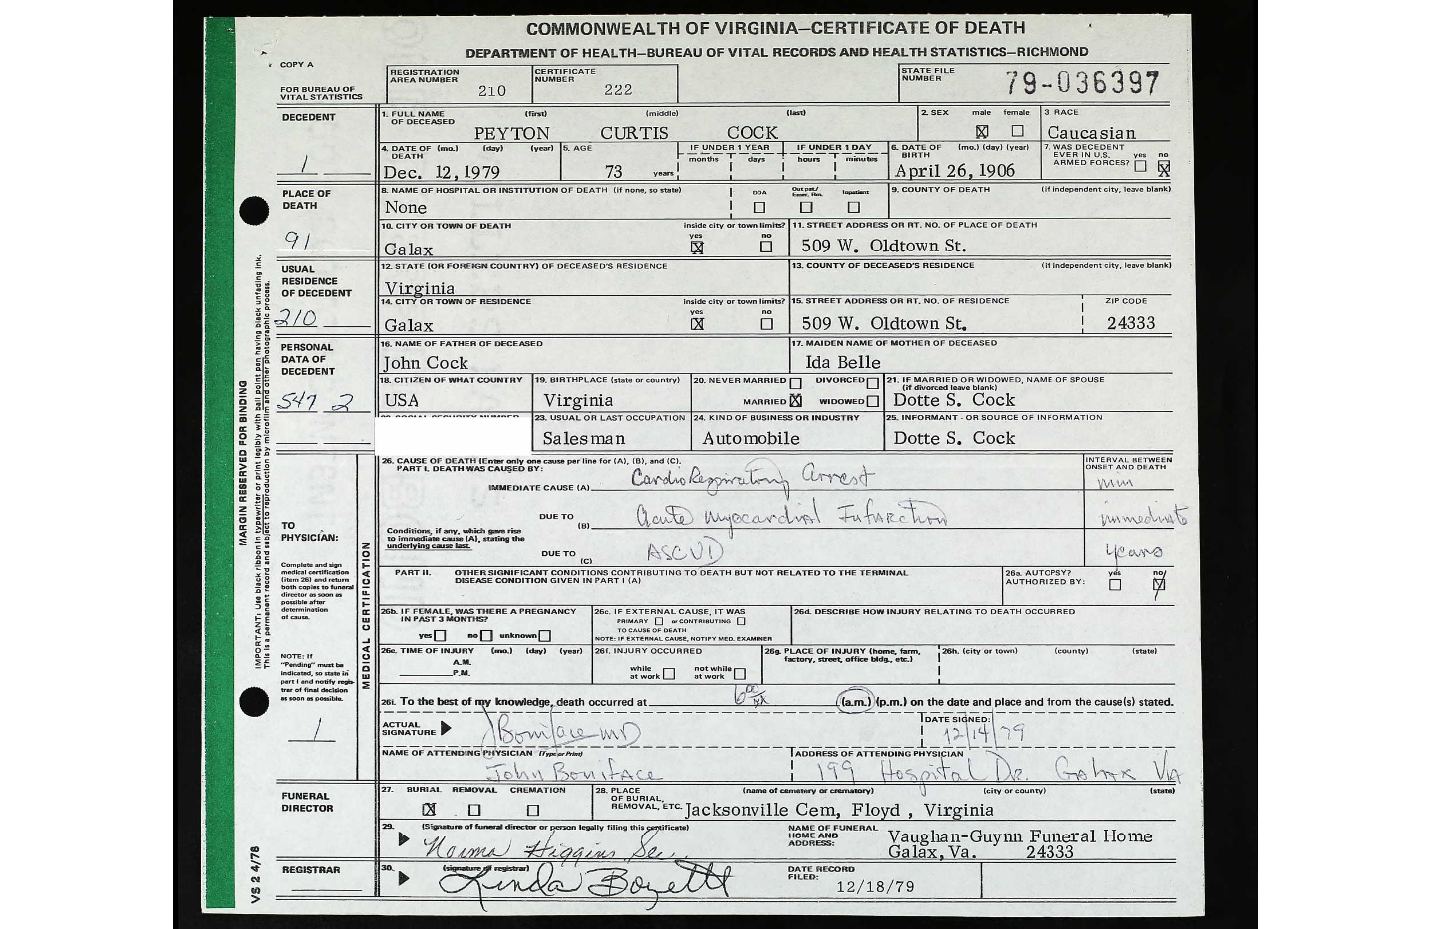 COMMONWEALTH OF VIRGINIA—CERTIFICATE OF DEATH
DEPARTMENT OF HEALTH—BUREAU OF VITAL RECORDS AND HEALTH STATISTICS—RICHMOND
COPY A
FOR BUREAU OF VITAL STATISTICS
REGISTRATION AREA NUMBER 210
CERTIFICATE NUMBER 222
STATE FILE NUMBER 79-036397
DECEDENT
1
1. FULL NAME OF DECEASED (first) (middle) (last)
PEYTON CURTIS COCK
2. SEX male female
3. RACE
Caucasian
4. DATE OF DEATH (mo.) (day) (year)
Dec. 12, 1979
5. AGE
73 years
IF UNDER 1 YEAR months days
IF UNDER 1 DAY hours minutes
6. DATE OF BIRTH (mo.) (day) (year)
April 26, 1906
7. WAS DECEDENT EVER IN U.S. ARMED FORCES? yes no
PLACE OF DEATH
91
8. NAME OF HOSPITAL OR INSTITUTION OF DEATH (if none, so state)
None
DOA Out pat./ Emer. Rm. Inpatient
9. COUNTY OF DEATH (if independent city, leave blank)
10. CITY OR TOWN OF DEATH inside city or town limits? yes no
Galax
11. STREET ADDRESS OR RT. NO. OF PLACE OF DEATH
509 W. Oldtown St.
USUAL RESIDENCE OF DECEDENT
210
12. STATE (OR FOREIGN COUNTRY) OF DECEASED'S RESIDENCE
Virginia
13. COUNTY OF DECEASED'S RESIDENCE (if independent city, leave blank)
14. CITY OR TOWN OF RESIDENCE inside city or town limits? yes no
Galax
15. STREET ADDRESS OR RT. NO. OF RESIDENCE ZIP CODE
509 W. Oldtown St. 24333
PERSONAL DATA OF DECEDENT
547 2
16. NAME OF FATHER OF DECEASED
John Cock
17. MAIDEN NAME OF MOTHER OF DECEASED
Ida Belle
18. CITIZEN OF WHAT COUNTRY
USA
19. BIRTHPLACE (state or country)
Virginia
20. NEVER MARRIED DIVORCED
MARRIED WIDOWED
21. IF MARRIED OR WIDOWED, NAME OF SPOUSE (if divorced leave blank)
Dotte S. Cock
23. USUAL OR LAST OCCUPATION
Salesman
24. KIND OF BUSINESS OR INDUSTRY
Automobile
25. INFORMANT - OR SOURCE OF INFORMATION
Dotte S. Cock
MARGIN RESERVED FOR BINDING
IMPORTANT: Use black ribbon in typewriter or print legibly with ball point pen having black unfading ink.
This is a permanent record and subject to reproduction by microfilm and other photographic process.
TO PHYSICIAN:
Complete and sign medical certification (item 26) and return both copies to funeral director as soon as possible after determination of cause.
NOTE: If "Pending" must be indicated, so state in part I and notify registrar of final decision as soon as possible.
1
MEDICAL CERTIFICATION
26. CAUSE OF DEATH (Enter only one cause per line for (A), (B), and (C).
PART I. DEATH WAS CAUSED BY:
INTERVAL BETWEEN ONSET AND DEATH
IMMEDIATE CAUSE (A) CardioRespiratory Arrest min
DUE TO (B) Acute Myocardial Infarction immediate
Conditions, if any, which gave rise to immediate cause (A), stating the underlying cause last.
DUE TO (C) ASCVD years
PART II. OTHER SIGNIFICANT CONDITIONS CONTRIBUTING TO DEATH BUT NOT RELATED TO THE TERMINAL DISEASE CONDITION GIVEN IN PART I (A)
26a. AUTOPSY? AUTHORIZED BY: yes no
26b. IF FEMALE, WAS THERE A PREGNANCY IN PAST 3 MONTHS?
yes no unknown
26c. IF EXTERNAL CAUSE, IT WAS
PRIMARY or CONTRIBUTING
TO CAUSE OF DEATH
NOTE: IF EXTERNAL CAUSE, NOTIFY MED. EXAMINER
26d. DESCRIBE HOW INJURY RELATING TO DEATH OCCURRED
26e. TIME OF INJURY (mo.) (day) (year)
A.M.
P.M.
26f. INJURY OCCURRED
while at work not while at work
26g. PLACE OF INJURY (home, farm, factory, street, office bldg., etc.)
26h. (city or town) (county) (state)
26i. To the best of my knowledge, death occurred at (a.m.) (p.m.) on the date and place and from the cause(s) stated.
ACTUAL SIGNATURE J Boniface MD
DATE SIGNED: 12/14/79
NAME OF ATTENDING PHYSICIAN (Type or Print)
John Boniface
ADDRESS OF ATTENDING PHYSICIAN
199 Hospital Dr. Galax VA
FUNERAL DIRECTOR
27. BURIAL REMOVAL CREMATION
28. PLACE OF BURIAL, REMOVAL, ETC. (name of cemetery or crematory) (city or county) (state)
Jacksonville Cem, Floyd , Virginia
29. (Signature of funeral director or person legally filing this certificate)
Norma Higgins
NAME OF FUNERAL HOME AND ADDRESS:
Vaughan-Guynn Funeral Home
Galax, Va. 24333
REGISTRAR
30. (signature of registrar)
Linda
DATE RECORD FILED: 12/18/79
VS 2 4/78